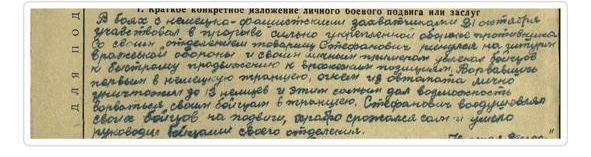 1. Краткое конкретное изложение личного боевого подвига или заслуг
В боях с немецко-фашистскими захватчиками 21 октября
участвовал в прорыве сильно укрепленной обороны противника
Со своим отделением товарищ Стефанович ринулся на штурм
вражеской обороны и своим личным примером увлекал бойцов
к быстрому продвижению к вражеским позициям. Ворвавшись
первым в немецкую траншею, огнем из автомата лично
уничтожил до 13 немцев и этим самым дал возможность
ворваться своим бойцам в траншею. Стефанович воодушевлял
своих бойцов на подвиги, храбро сражался сам и умело
руководил бойцами своего отделения.
ДЛЯ ПОД